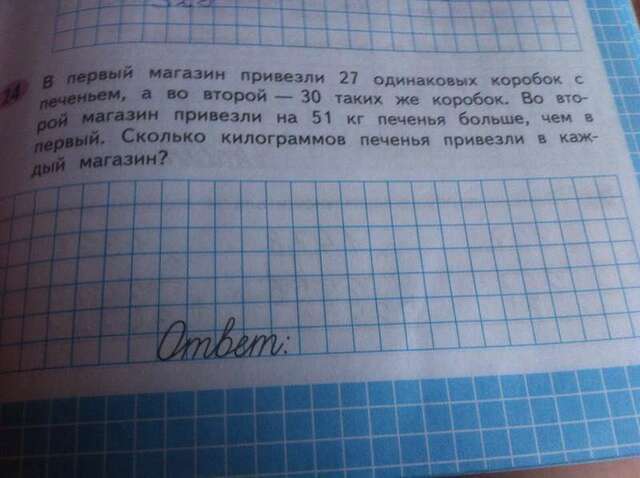 24 В первый магазин привезли 27 одинаковых коробок с
печеньем, а во второй — 30 таких же коробок. Во вто-
рой магазин привезли на 51 кг печенья больше, чем в
первый. Сколько килограммов печенья привезли в каж-
дый магазин?
Ответ: